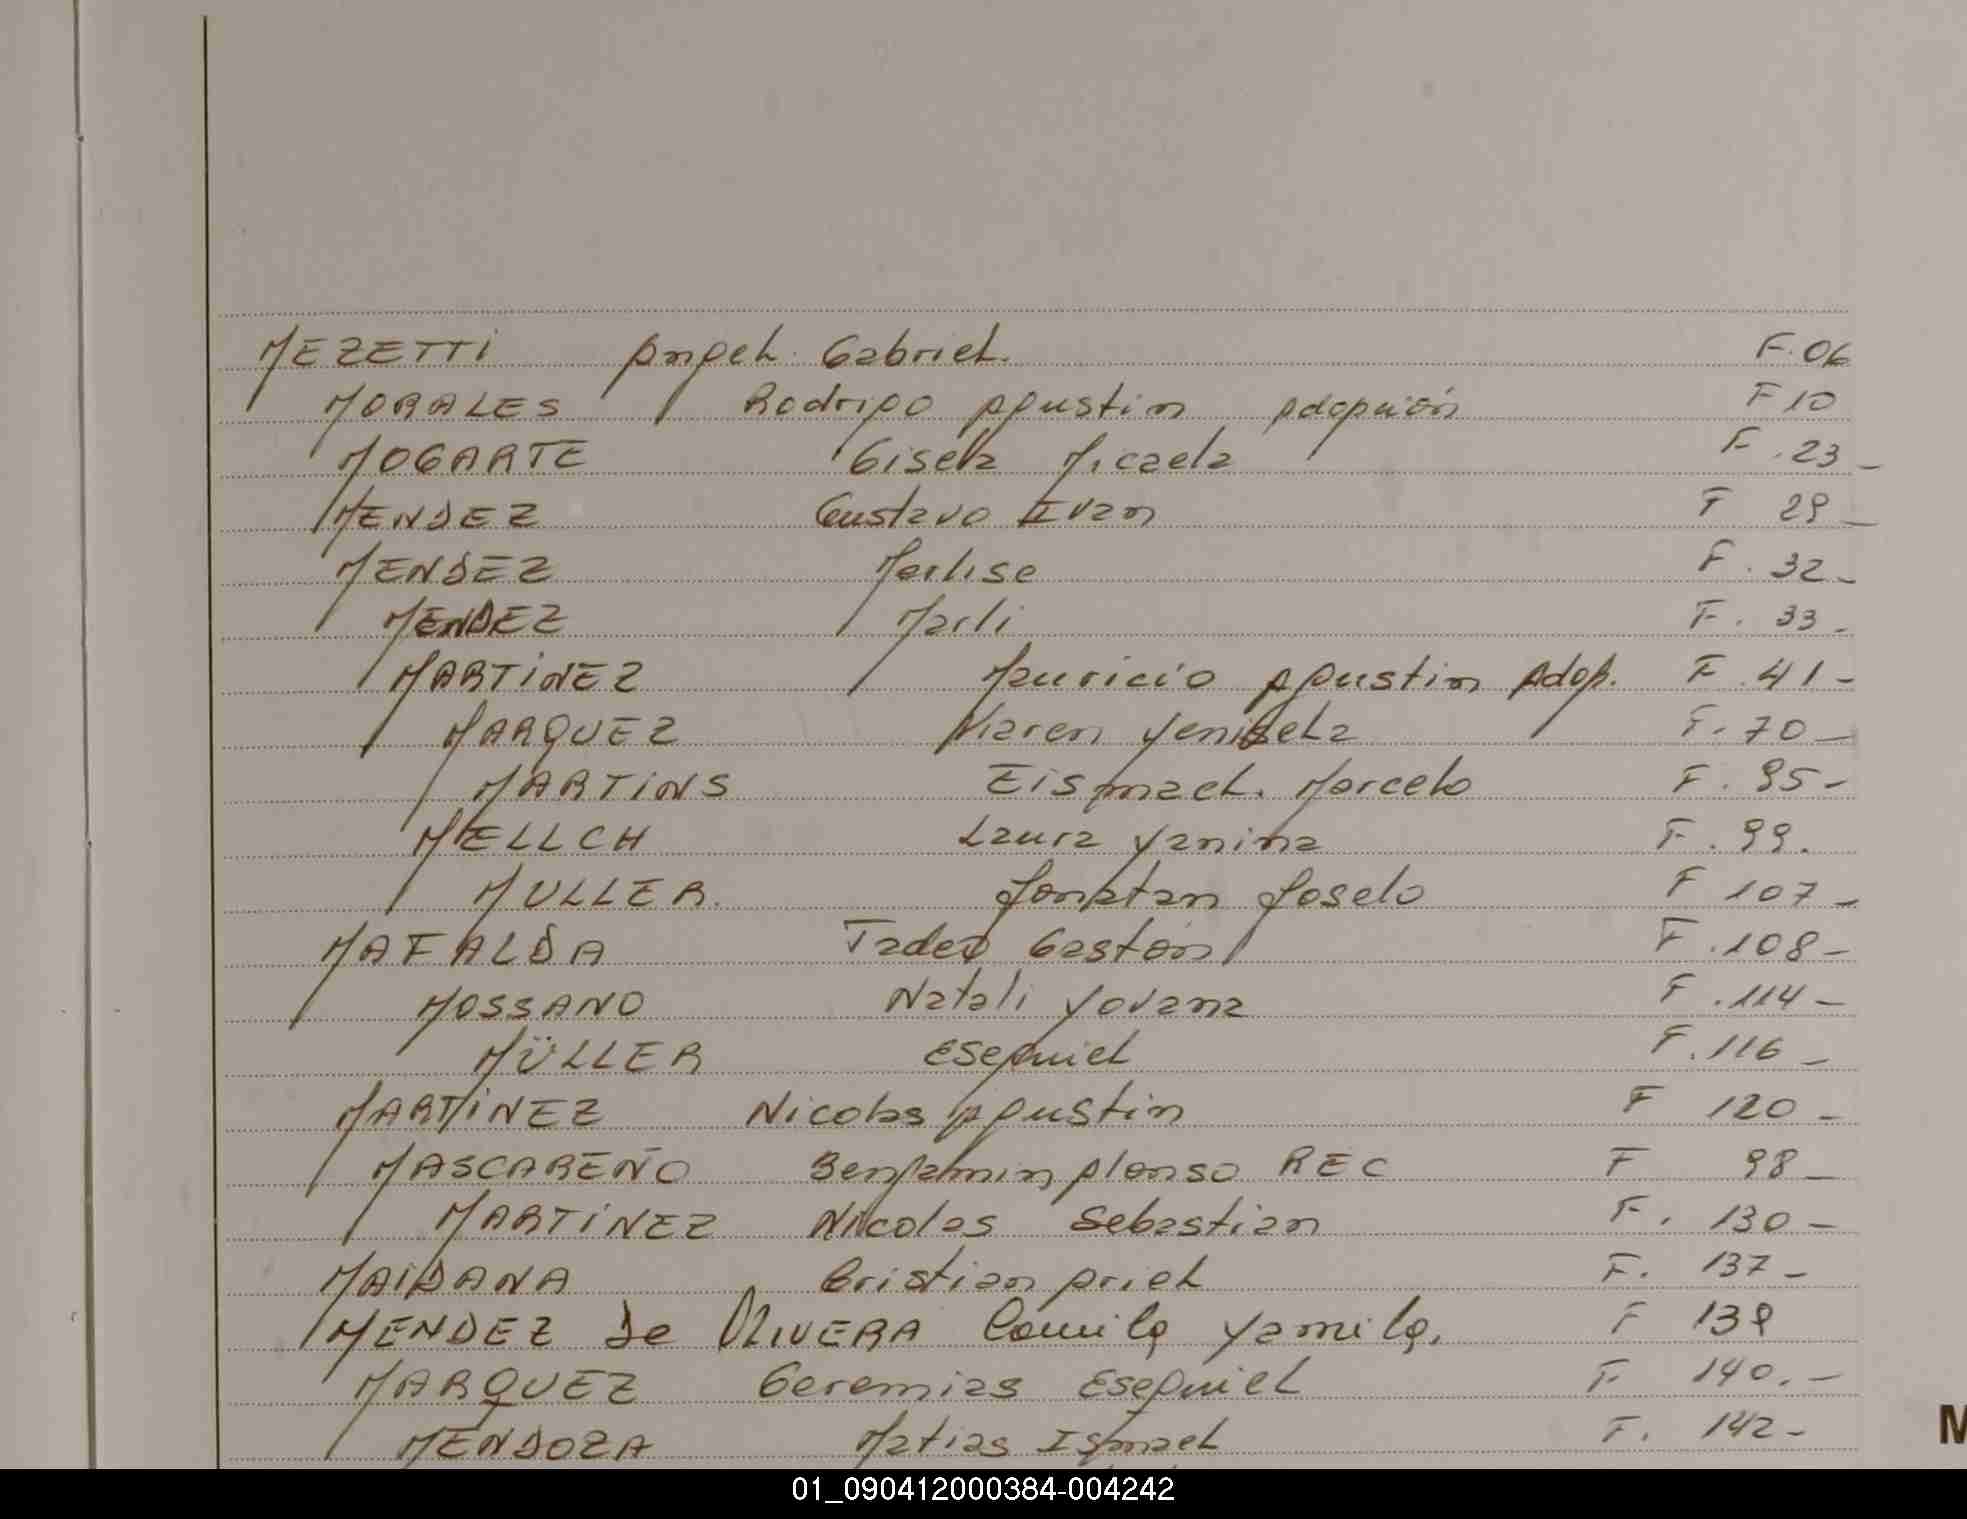 MEZETTI Angel Gabriel. F.06
MORALES Rodrigo Agustin Adopción F 10
MOGARTE Gisela Micaela F.23-
MENDEZ Gustavo Ivan F 29-
MENDEZ Marlise F.32-
MENDEZ Marli F.33-
MARTINEZ Mauricio Agustin Adop. F 41-
MARQUEZ Karen Yenisela F.70-
MARTINS Eismael. Marcelo F.95-
MELLCH Laura Yanina F.99.
MULLER. Jonatan Joselo F 107-
MAFALDA Tadeo Gastón F.108-
MOSSANO Natali Yovana F.114-
MÜLLER Esequiel F.116-
MARTINEZ Nicolas Agustin F 120-
MASCAREÑO Benjamin Alonso REC F 98-
MARTINEZ Nicolas Sebastian F. 130-
MAIDANA Cristian Ariel F. 137-
MENDEZ De OLIVERA Camila Yamila. F 139
MARQUEZ Geremias Esequiel F 140.-
MENDOZA Matias Ismael F. 142-
M
01_090412000384-004242